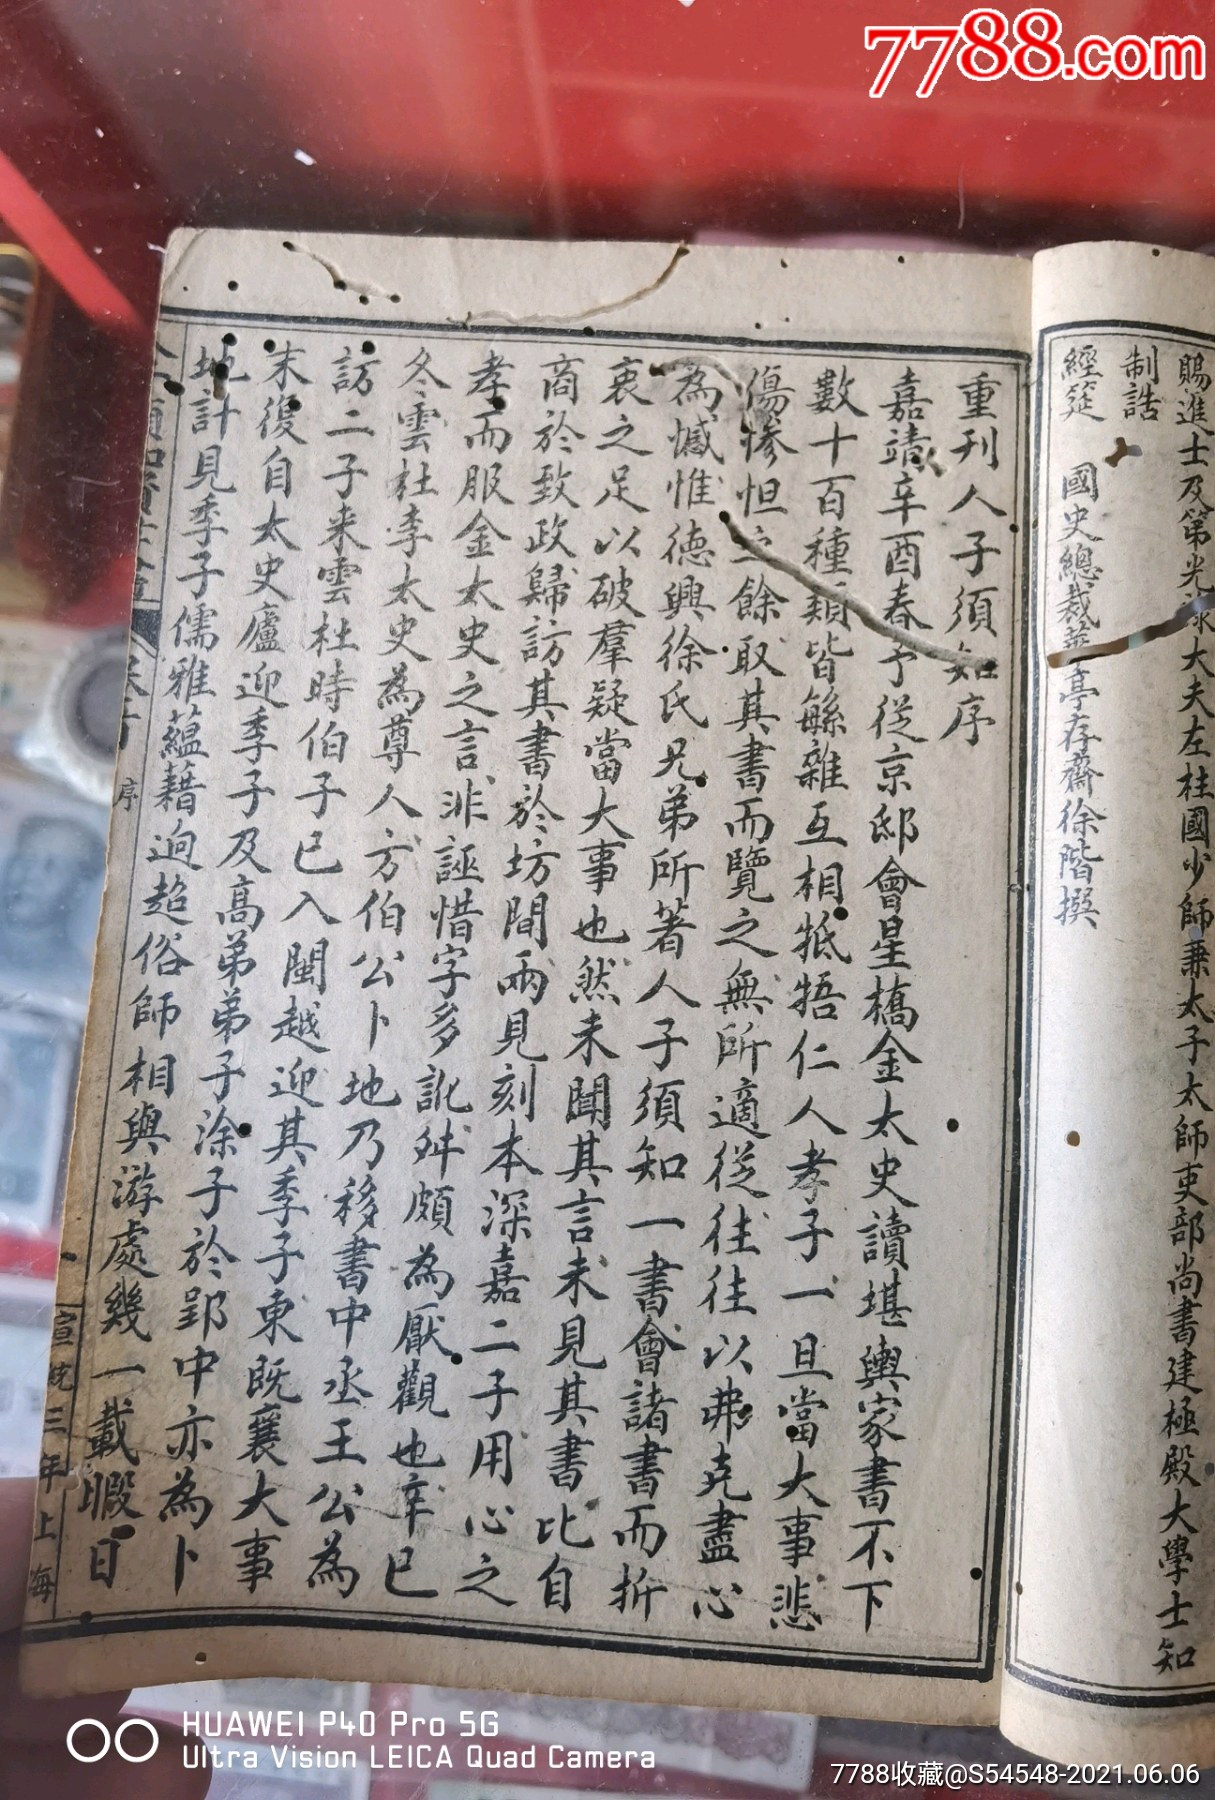 7788.com
賜進士及第光祿大夫左柱國少師兼太子太師吏部尚書建極殿大學士知
制誥
經筵 國史總裁華亭存齋徐階撰
重刊人子須知序
嘉靖辛酉春予從京邸會星橋金太史讀堪輿家書不下
數十百種類皆繇雜互相牴牾仁人孝子一旦當大事悲
傷慘怛之餘取其書而覽之無所適從往往以弗克盡心
為憾惟德興徐氏兄弟所著人子須知一書會諸書而折
衷之足以破羣疑當大事也然未聞其言未見其書比自
商於致政歸訪其書於坊間兩見刻本深嘉二子用心之
孝而服金太史之言非誣惜字多訛舛頗為厭觀也辛巳
冬雲杜李太史為尊人方伯公卜地乃移書中丞王公為
訪二子来雲杜時伯子已入閩越迎其季子東既襄大事
末復自太史廬迎季子及高弟弟子涂子於郢中亦為卜
地計見季子儒雅蘊藉逈超俗師相與游處幾一載暇日
序
一
宣統三年上海
HUAWEI P40 Pro 5G
Ultra Vision LEICA Quad Camera
7788收藏@S54548-2021.06.06